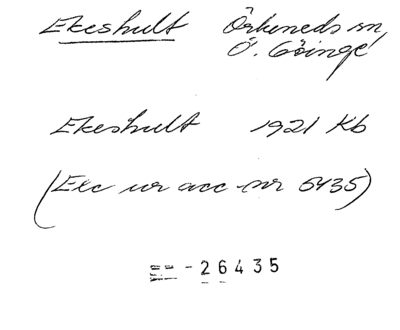 Ekeshult Örkeneds sn,
Ö. Göinge
Ekeshult 1921 Kb
(Exc ur acc nr 6435)
-26435